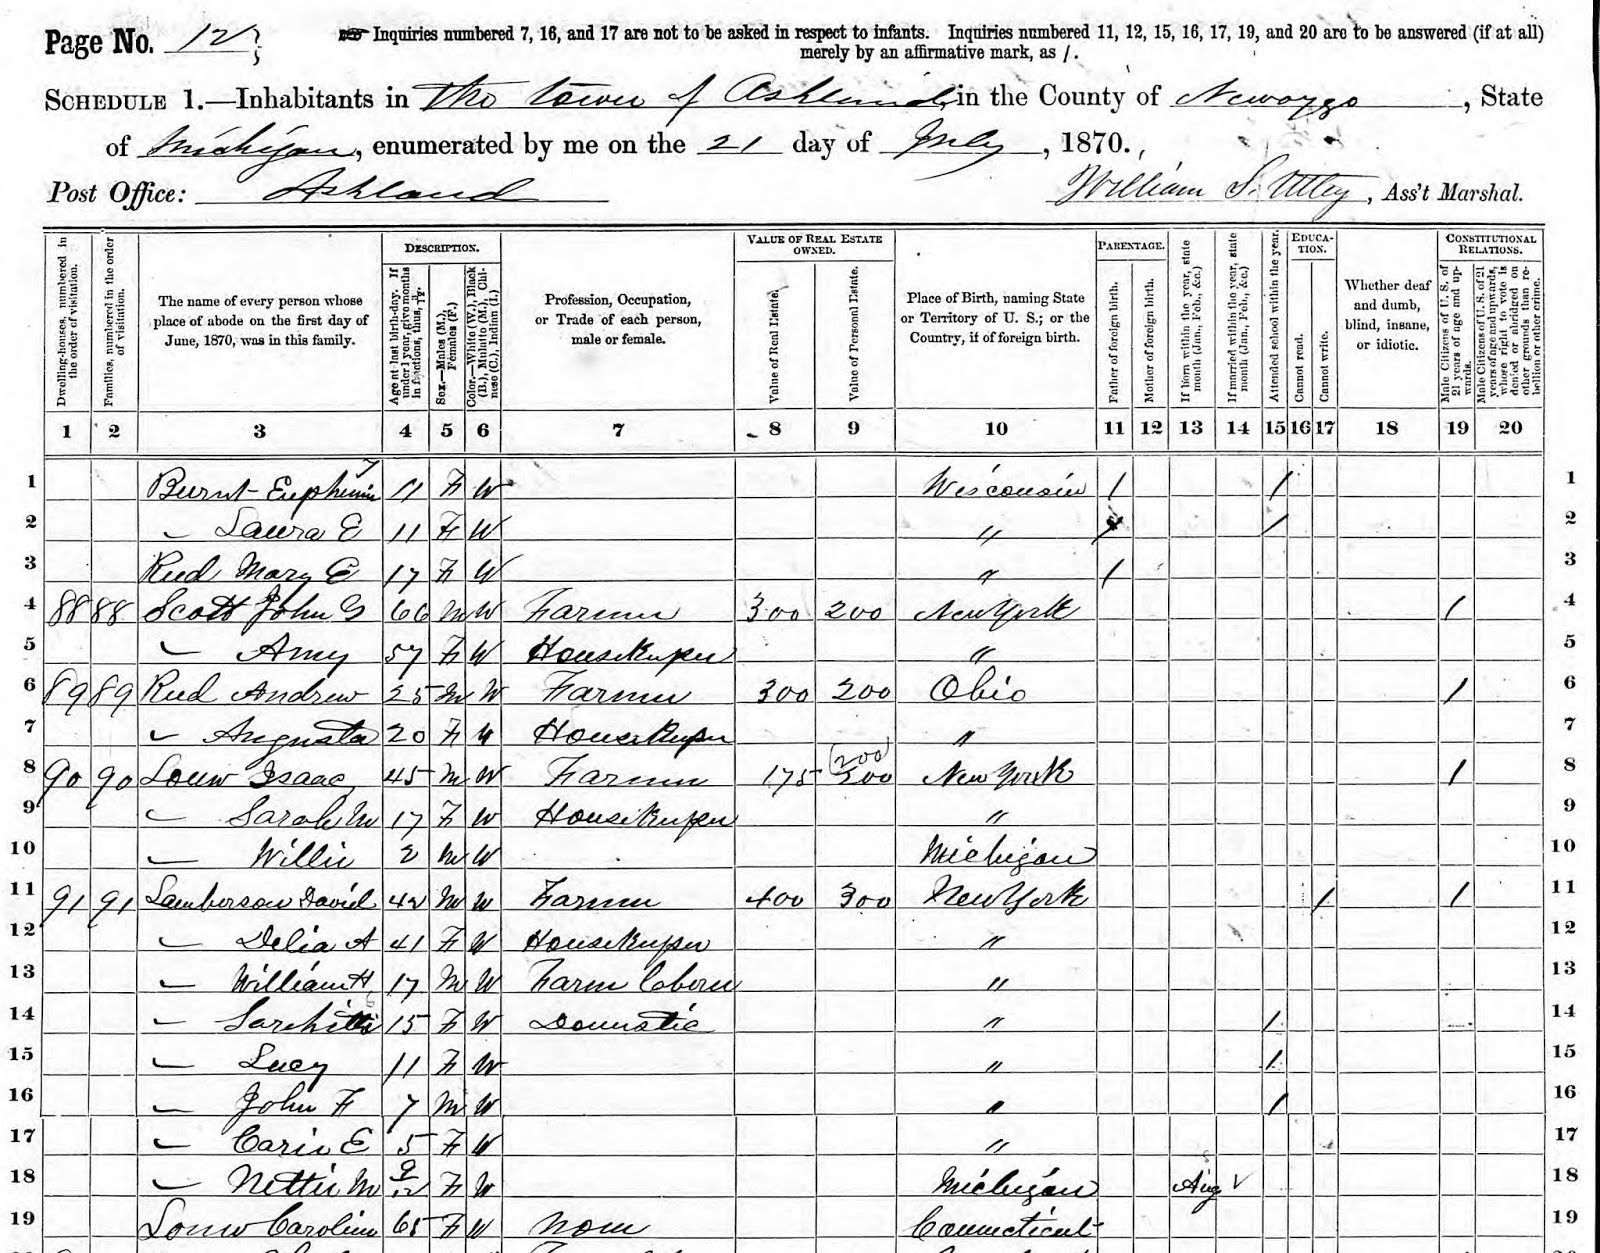 Page No. 12
Inquiries numbered 7, 16, and 17 are not to be asked in respect to infants. Inquiries numbered 11, 12, 15, 16, 17, 19, and 20 are to be answered (if at all)
merely by an affirmative mark, as /.
SCHEDULE 1.—Inhabitants in The town of Ashland, in the County of Newaygo, State
of Michigan, enumerated by me on the 21 day of July, 1870.
Post Office: Ashland William S. Utley, Ass't Marshal.
Dwelling-houses, numbered in the order of visitation.
Families, numbered in the order of visitation.
The name of every person whose place of abode on the first day of June, 1870, was in this family.
DESCRIPTION.
Age at last birth-day. If under 1 year, give months in fractions, thus,
Sex.—Males (M.), Females (F.)
Color.—White (W.), Black (B.), Mulatto (M.), Chinese (C.), Indian (I.)
Profession, Occupation, or Trade of each person, male or female.
VALUE OF REAL ESTATE OWNED.
Value of Real Estate.
Value of Personal Estate.
Place of Birth, naming State or Territory of U. S.; or the Country, if of foreign birth.
PARENTAGE.
Father of foreign birth.
Mother of foreign birth.
If born within the year, state month (Jan., Feb., &c.)
If married within the year, state month (Jan., Feb., &c.)
Attended school within the year.
EDUCATION.
Cannot read.
Cannot write.
Whether deaf and dumb, blind, insane, or idiotic.
CONSTITUTIONAL RELATIONS.
Male Citizens of U. S. of 21 years of age and upwards.
Male Citizens of U. S. of 21 years of age and upwards, whose right to vote is denied or abridged on other grounds than rebellion or other crime.
1 2 3 4 5 6 7 8 9 10 11 12 13 14 15 16 17 18 19 20
1 Burnt Euphemia 11 F W Wisconsin / / 1
2 " Laura E 11 F W " / / 2
3 Reed Mary E 17 F W " / 3
4 88 88 Scott John G 66 M W Farmer 300 200 New York / 4
5 " Amy 57 F W Housekeeper " 5
6 89 89 Reed Andrew 25 M W Farmer 300 200 Ohio / 6
7 " Augusta 20 F W Housekeeper " 7
8 90 90 Isaac 45 M W Farmer 175 (200) New York / 8
9 " Sarah M 17 F W Housekeeper " 9
10 " Willie 2 M W Michigan 10
11 91 91 Lamberson David 42 M W Farmer 400 300 New York / / 11
12 " Delia A 41 F W Housekeeper " 12
13 " William H 17 M W Farm Laborer " 13
14 " 15 F W Domestic " / 14
15 " Lucy 11 F W " / 15
16 " John F 7 M W " / 16
17 " Carie E 5 F W " 17
18 " Nettie M 9/12 F W Michigan Aug 18
19 Caroline 65 F W None Connecticut 19